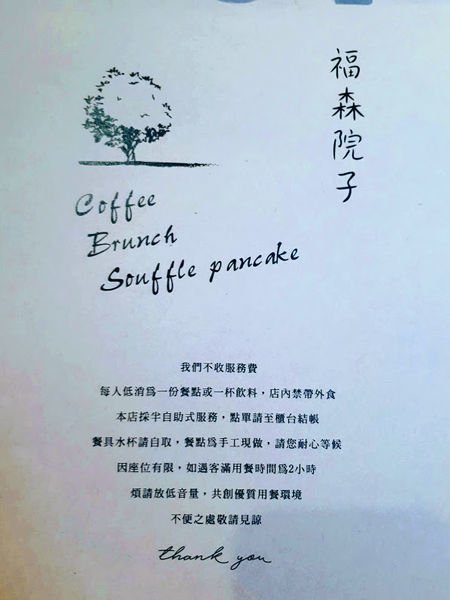 福森院子
Coffee
Brunch
Souffle pancake
我們不收服務費
每人低消爲一份餐點或一杯飲料，店內禁帶外食
本店採半自助式服務，點單請至櫃台結帳
餐具水杯請自取，餐點爲手工現做，請您耐心等候
因座位有限，如遇客滿用餐時間爲2小時
煩請放低音量，共創優質用餐環境
不便之處敬請見諒
thank you